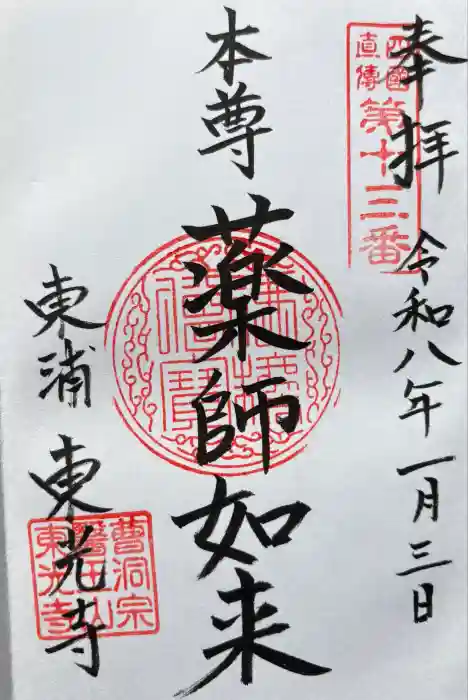 奉拝
令和八年一月三日
四國
直傳
第十三番
本尊
薬師如来
佛法僧寳
東浦 東光寺
曹洞宗
醫王山
東光寺